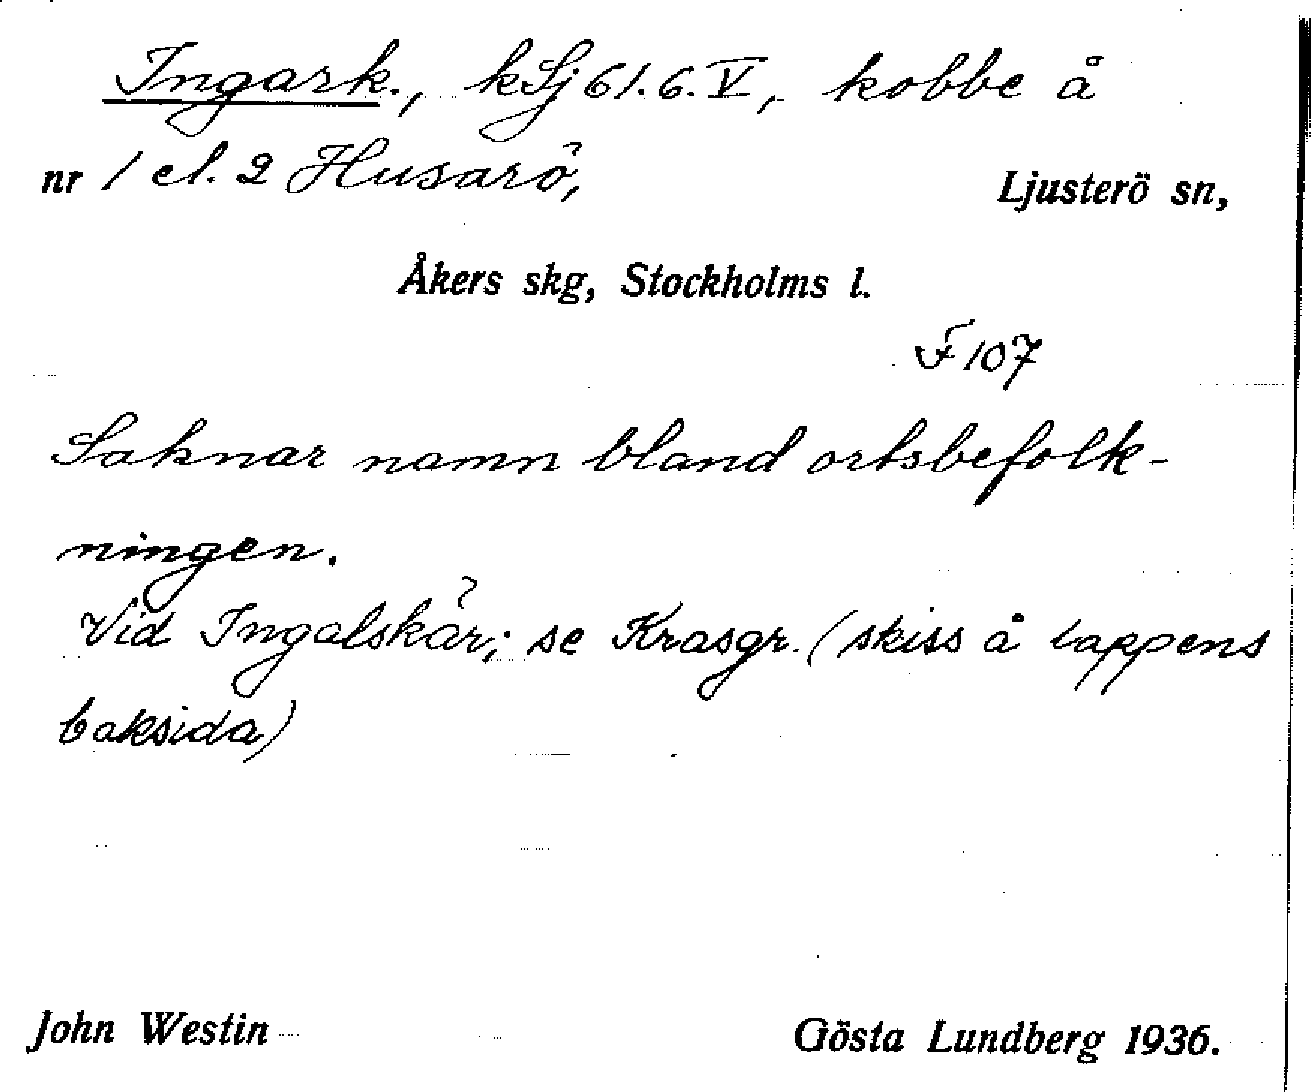 Ingark., kSj 61.6.V, kobbe å
nr 1 el. 2 Husarö, Ljusterö sn,
Åkers skg, Stockholms l.
F 107
Saknar namn bland ortsbefolk-
ningen.
Vid Ingalskär; se Krasgr. (skiss å lappens
baksida)
John Westin Gösta Lundberg 1936.